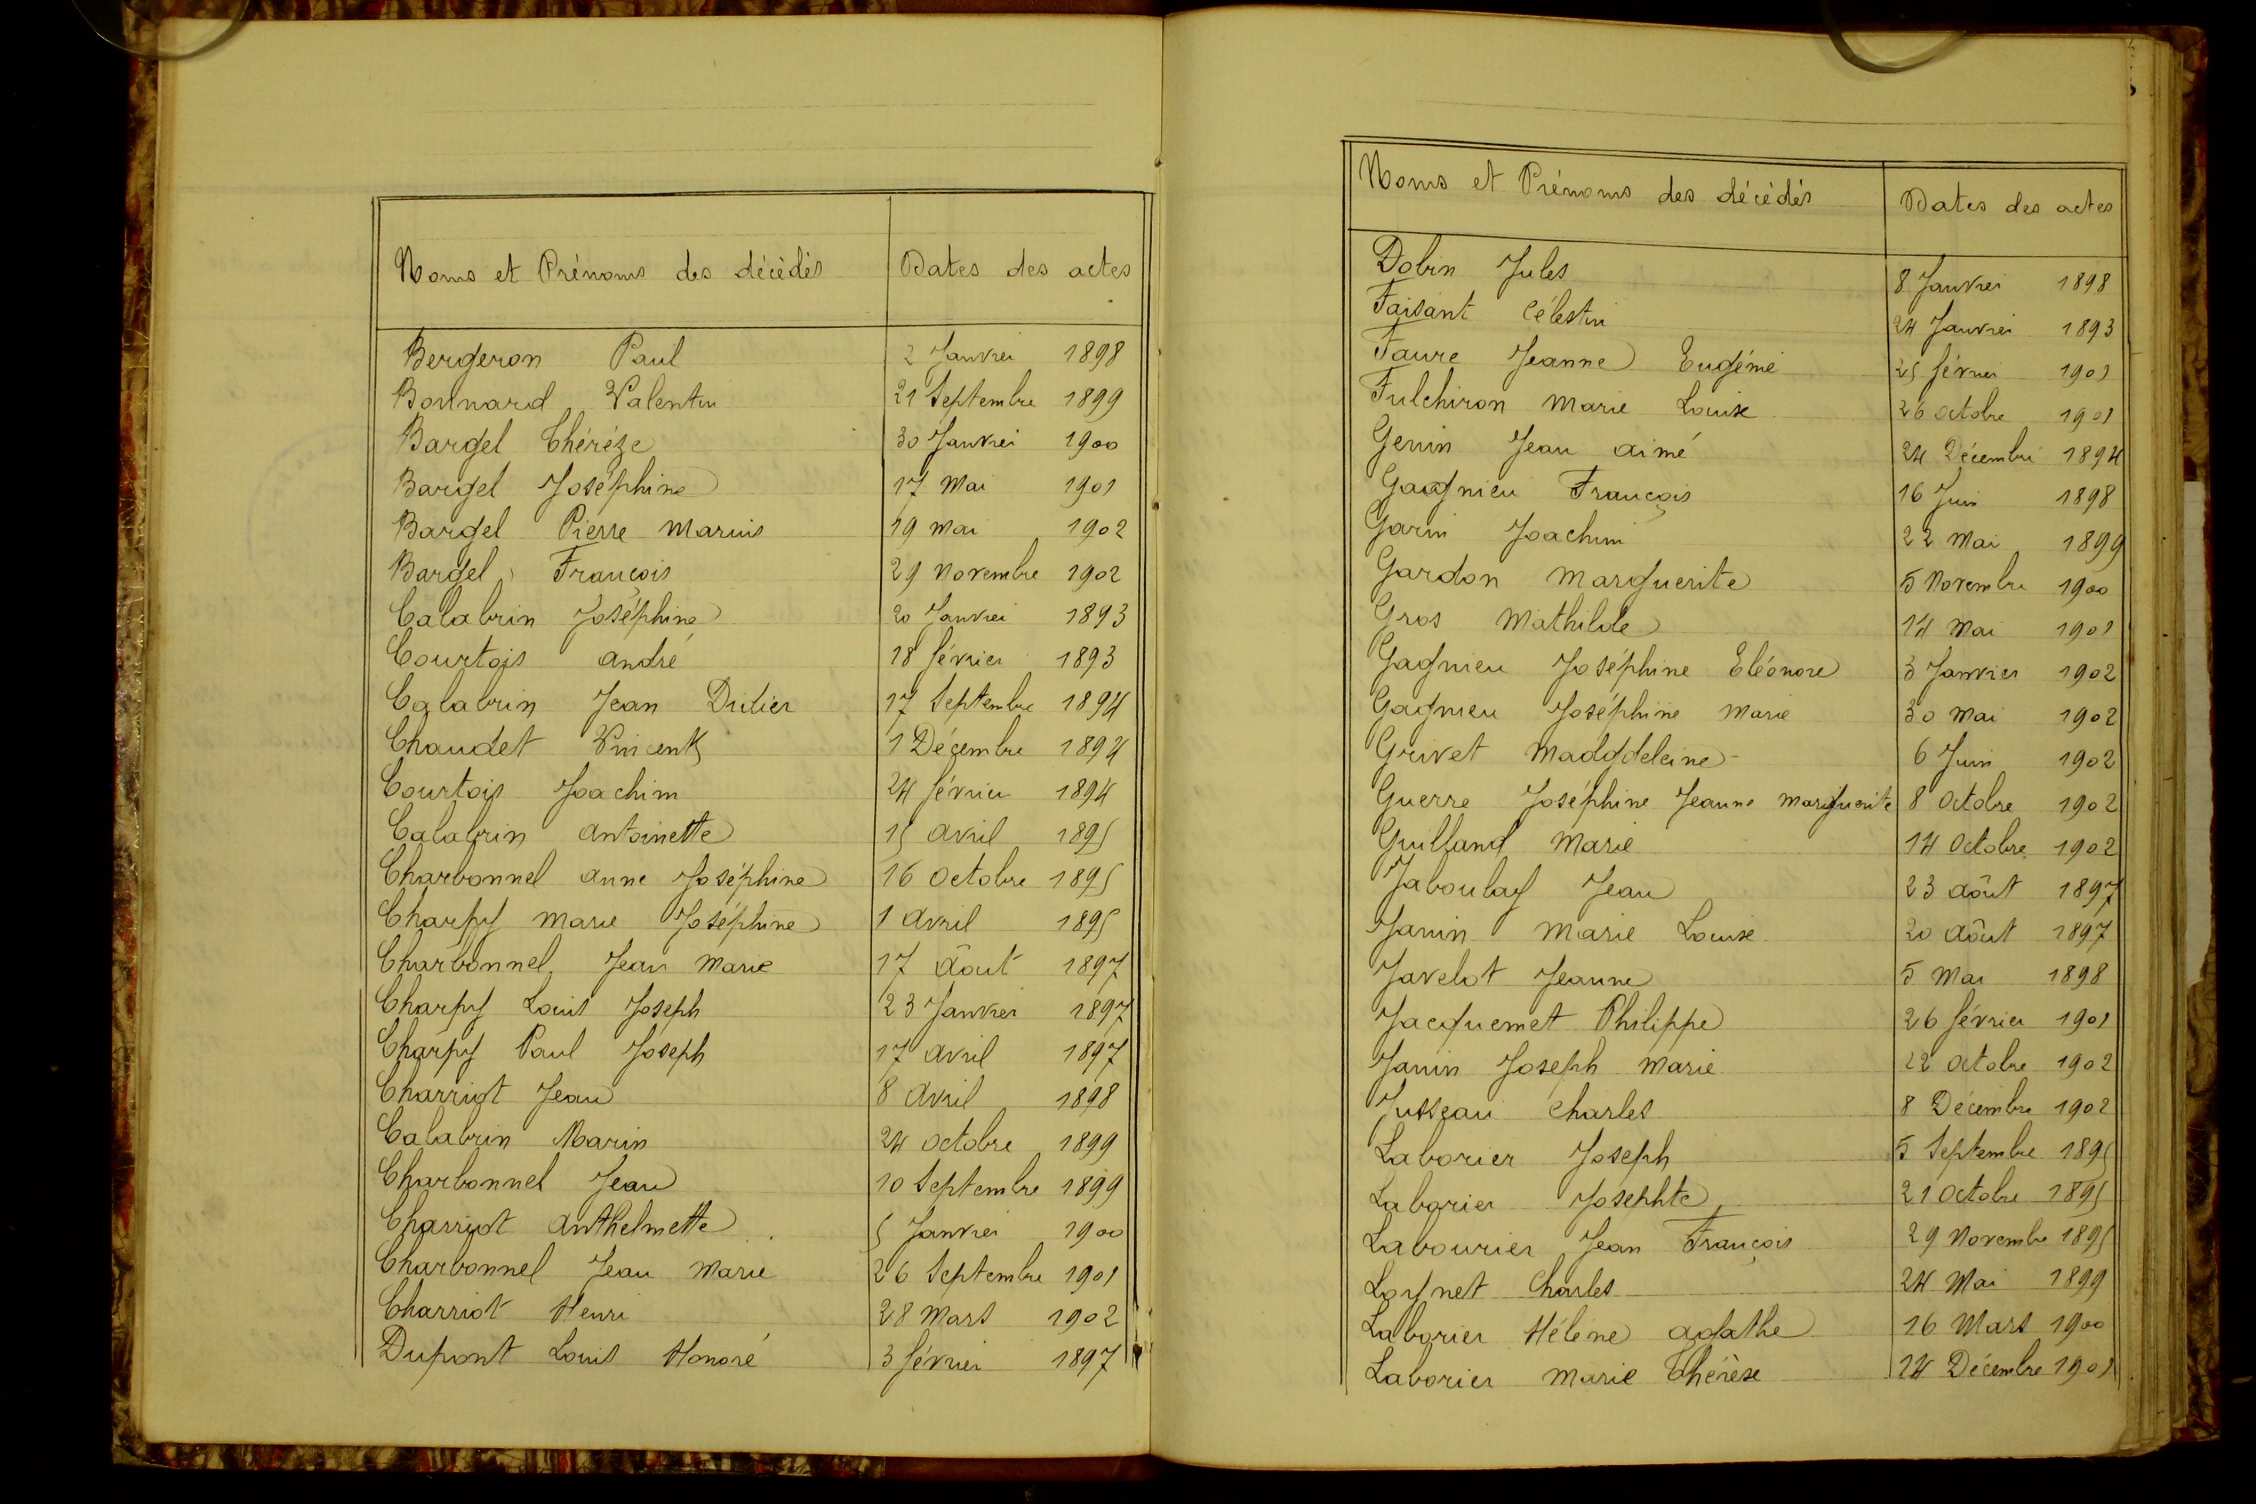 Noms et Prénoms des décédés Dates des actes
Bergeron Paul 2 Janvier 1898
Bonnard Valentin 21 Septembre 1899
Bargel Thérèze 30 Janvier 1900
Bargel Joséphine 17 Mai 1901
Bargel Pierre Marius 19 Mai 1902
Bargel François 29 Novembre 1902
Calabrin Joséphine 20 Janvier 1893
Courtois André 18 février 1893
Calabrin Jean Didier 17 Septembre 1894
Chaudet Vincent 1 Décembre 1894
Courtois Joachim 24 février 1894
Calabrin Antoinette 15 Avril 1895
Charbonnel Anne Joséphine 16 Octobre 1895
Charpy Marie Joséphine 1 Avril 1895
Charbonnel Jean Marie 17 Août 1897
Charpy Louis Joseph 23 Janvier 1897
Charpy Paul Joseph 17 Avril 1897
Charriot Jean 8 Avril 1898
Calabrin Marin 24 Octobre 1899
Charbonnel Jean 10 Septembre 1899
Charriot Anthelmette 5 Janvier 1900
Charbonnel Jean Marie 26 Septembre 1901
Charriot Henri 28 Mars 1902
Dupont Louis Honoré 3 février 1897
Noms et Prénoms des décédés Dates des actes
Dobin Jules 8 Janvier 1898
Faisant Célestin 24 Janvier 1893
Faure Jeanne Eugénie 25 février 1901
Fulchiron Marie Louise 26 Octobre 1901
Genin Jean Aimé 24 Décembre 1894
Gagnieu François 16 Juin 1898
Garin Joachim 22 Mai 1899
Gardon Marguerite 5 Novembre 1900
Gros Mathilde 14 Mai 1901
Gagnieu Joséphine Eléonore 3 Janvier 1902
Gagnieu Joséphine Marie 30 Mai 1902
Grivet Madgdeleine 6 Juin 1902
Guerre Joséphine Jeanne Marguerite 8 Octobre 1902
Guilland Marie 14 Octobre 1902
Jaboulay Jean 23 Août 1897
Janin Marie Louise 20 Août 1897
Javelot Jeanne 5 Mai 1898
Jacquemet Philippe 26 février 1901
Janin Joseph Marie 22 Octobre 1902
Jusseau Charles 8 Décembre 1902
Laborier Joseph 5 Septembre 1895
Laborier Josephte 21 Octobre 1895
Labourier Jean François 29 Novembre 1895
Loynet Charles 24 Mai 1899
Laborier Hélène Agathe 16 Mars 1900
Laborier Marie Thérèse 14 Décembre 1901